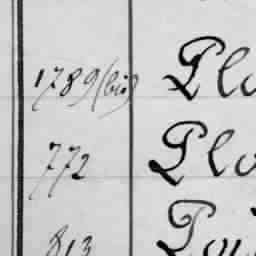 1789(bis) Plo
772 Plo
813 Poi